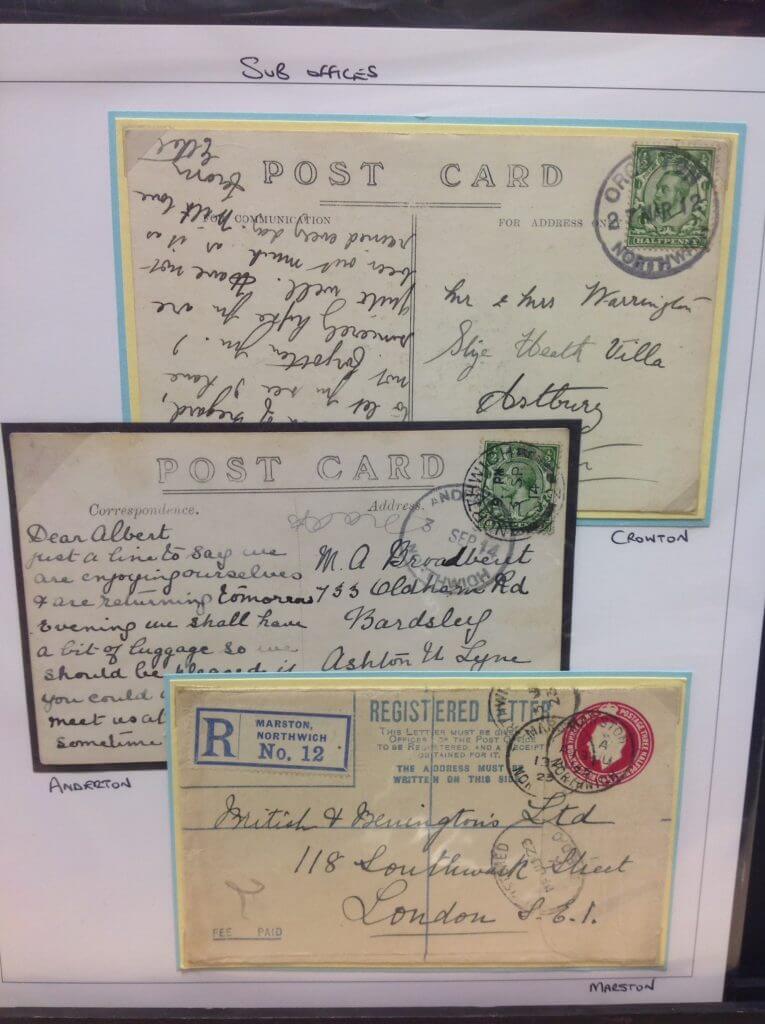 SUB OFFICES
POST CARD
FOR COMMUNICATION
FOR ADDRESS ONLY
of regard,
to let you see I have
not forgotten you. I
sincerely hope you are
quite well. Have not
been out much as it as
rained every day. With love
from
MAR 12
NORTHWICH
HALFPENNY
Mr & Mrs Warrington
Heath Villa
Astbury
CROWTON
POST CARD
Correspondence.
Address.
Dear Albert
just a line to say we
are enjoying ourselves
& are returning tomorrow
Evening we shall have
a bit of luggage so we
should be pleased if
you could
meet us at
sometime
NORTHWICH
PM
SP
14
AND
3
SEP 14
NORTHWICH
M. A Broadbent
733 Oldham Rd
Bardsley
Ashton U Lyne
ANDERTON
REGISTERED LETTER
THIS LETTER MUST BE GIVEN
OFFICER OF THE POST OFFICE
TO BE REGISTERED, AND A RECEIPT
OBTAINED FOR IT.
THE ADDRESS MUST BE
WRITTEN ON THIS SIDE
R
MARSTON,
NORTHWICH
No. 12
POSTAGE THREE HALF
British & Benington's Ltd
118 Southwark Street
London S.E.1.
FEE PAID
MARSTON